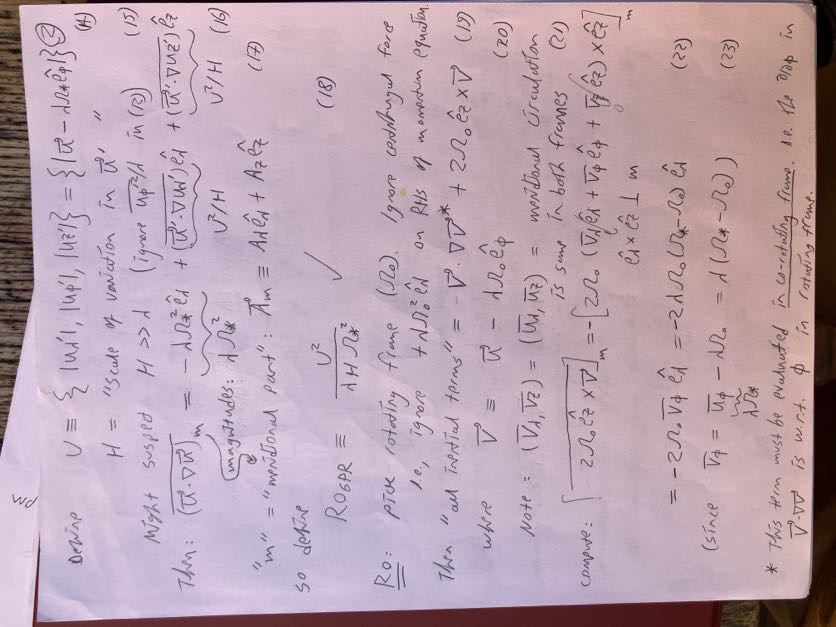 pm
②
Define U ≡ { |u_λ'|, |u_φ'|, |u_z'| } = { |u⃗ - λΩ_* ê_φ| } (14)
H = "Scale of variation in u⃗' "
Might suspect H >> λ (ignore \overline{u_φ'^2}/λ in (12)) (15)
Then: \overline{(u⃗·∇u⃗)}_m = -λΩ_*^2 ê_λ + \overline{(u⃗'·∇u_λ')} ê_λ + \overline{(u⃗'·∇u_z')} ê_z
magnitudes: λΩ_*^2 U^2/H U^2/H (16)
"m" = "meridional part": A⃗_m ≡ A_λ ê_λ + A_z ê_z (17)
so define
Ro_GPR ≡ U^2 / (λ H Ω_*^2) ✓ (18)
Ro: pick rotating frame (Ω_0). Ignore centrifugal force
i.e., ignore +λΩ_0^2 ê_λ on RHS of momentum equation.
Then "all inertial terms" = v⃗·∇v⃗* + 2Ω_0 ê_z × v⃗ (19)
where v⃗ ≡ u⃗ - λΩ_0 ê_φ (20)
Note: (v̄_λ, v̄_z) = (ū_λ, ū_z) = meridional circulation
is same in both frames (21)
compute: [\overline{2Ω_0 ê_z × v⃗}]_m = -[2Ω_0 (v̄_λ ê_λ + v̄_φ ê_φ + v̄_z ê_z) × ê_z]_m
ê_λ × ê_z ⊥ m 0
= -2Ω_0 v̄_φ ê_λ = -2λΩ_0(Ω_* - Ω_0) ê_λ (22)
(since v̄_φ = ū_φ - λΩ_0 = λ(Ω_* - Ω_0)) (23)
λΩ_*
* This term must be evaluated in co-rotating frame. i.e. the ∂/∂φ in
v⃗·∇v⃗ is w.r.t. φ in rotating frame.